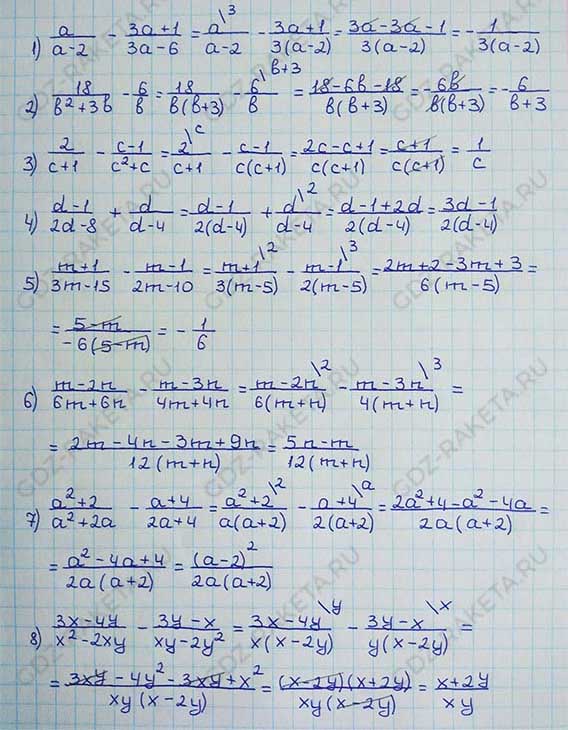 1) a/(a-2) - (3a+1)/(3a-6) = a\3/(a-2) - (3a+1)/(3(a-2)) = (3a-3a-1)/(3(a-2)) = -1/(3(a-2))
2) 18/(b²+3b) - 6/b = 18/(b(b+3)) - 6\b+3/b = (18-6b-18)/(b(b+3)) = -6b/(b(b+3)) = -6/(b+3)
3) 2/(c+1) - (c-1)/(c²+c) = 2\c/(c+1) - (c-1)/(c(c+1)) = (2c-c+1)/(c(c+1)) = (c+1)/(c(c+1)) = 1/c
4) (d-1)/(2d-8) + d/(d-4) = (d-1)/(2(d-4)) + d\2/(d-4) = (d-1+2d)/(2(d-4)) = (3d-1)/(2(d-4))
5) (m+1)/(3m-15) - (m-1)/(2m-10) = (m+1)\2/(3(m-5)) - (m-1)\3/(2(m-5)) = (2m+2-3m+3)/(6(m-5)) =
= (5-m)/(-6(5-m)) = -1/6
6) (m-2n)/(6m+6n) - (m-3n)/(4m+4n) = (m-2n)\2/(6(m+n)) - (m-3n)\3/(4(m+n)) =
= (2m-4n-3m+9n)/(12(m+n)) = (5n-m)/(12(m+n))
7) (a²+2)/(a²+2a) - (a+4)/(2a+4) = (a²+2)\2/(a(a+2)) - (a+4)\a/(2(a+2)) = (2a²+4-a²-4a)/(2a(a+2)) =
= (a²-4a+4)/(2a(a+2)) = (a-2)²/(2a(a+2))
8) (3x-4y)/(x²-2xy) - (3y-x)/(xy-2y²) = (3x-4y)\y/(x(x-2y)) - (3y-x)\x/(y(x-2y)) =
= (3xy-4y²-3xy+x²)/(xy(x-2y)) = (x-2y)(x+2y)/(xy(x-2y)) = (x+2y)/(xy)
GDZ-RAKETA.RU